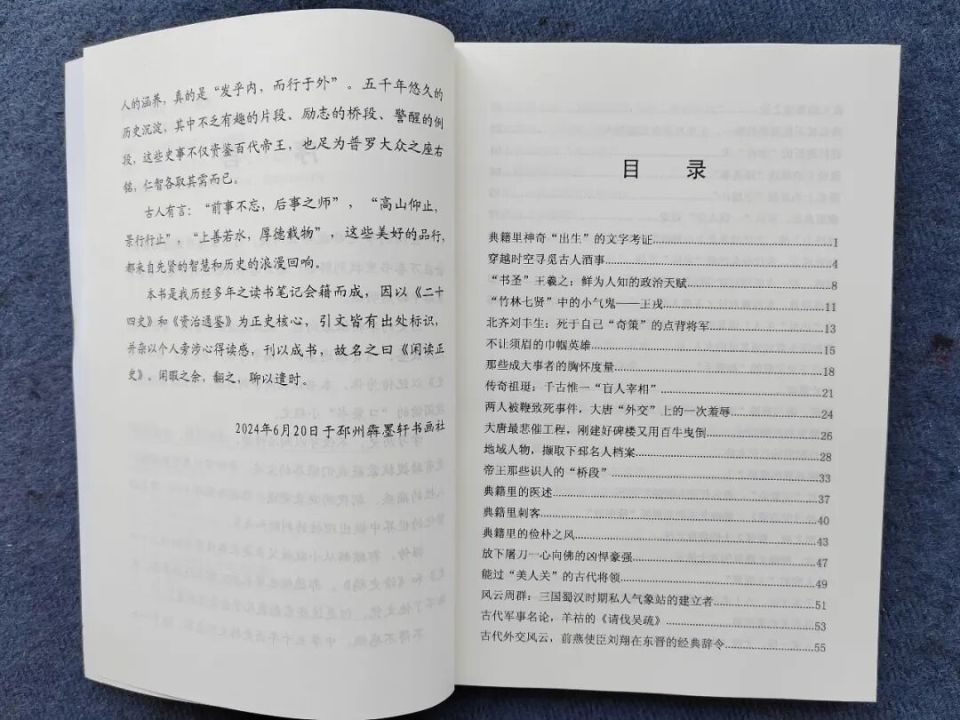 人的涵养，真的是“发乎内，而行于外”。五千年悠久的
历史沉淀，其中不乏有趣的片段、励志的桥段、警醒的例
段，这些史事不仅资鉴百代帝王，也足为普罗大众之座右
铭，仁智各取其需而已。
古人有言：“前事不忘，后事之师”，“高山仰止，
景行行止”，“上善若水，厚德载物”，这些美好的品行，
都来自先贤的智慧和历史的浪漫回响。
本书是我历经多年之读书笔记会籍而成，因以《二十
四史》和《资治通鉴》为正史核心，引文皆有出处标识，
并杂以个人旁涉心得读感，刊以成书，故名之曰《闲读正
史》，闲暇之余，翻之，聊以遣时。
2024年6月20日于邳州犇墨轩书画社
目 录
典籍里神奇“出生”的文字考证 1
穿越时空寻觅古人酒事 4
“书圣”王羲之：鲜为人知的政治天赋 8
“竹林七贤”中的小气鬼——王戎 11
北齐刘丰生：死于自己“奇策”的点背将军 13
不让须眉的巾帼英雄 15
那些成大事者的胸怀度量 18
传奇祖珽：千古惟一“盲人宰相” 21
两人被鞭致死事件，大唐“外交”上的一次羞辱 24
大唐最悲催工程，刚建好碑楼又用百牛曳倒 26
地域人物，撷取下邳名人档案 28
帝王那些识人的“桥段” 33
典籍里的医述 37
典籍里刺客 40
典籍里的俭朴之风 43
放下屠刀一心向佛的凶悍豪强 47
能过“美人关”的古代将领 49
风云周群：三国蜀汉时期私人气象站的建立者 51
古代军事名论，羊祜的《请伐吴疏》 53
古代外交风云，前燕使臣刘翔在东晋的经典辞令 55